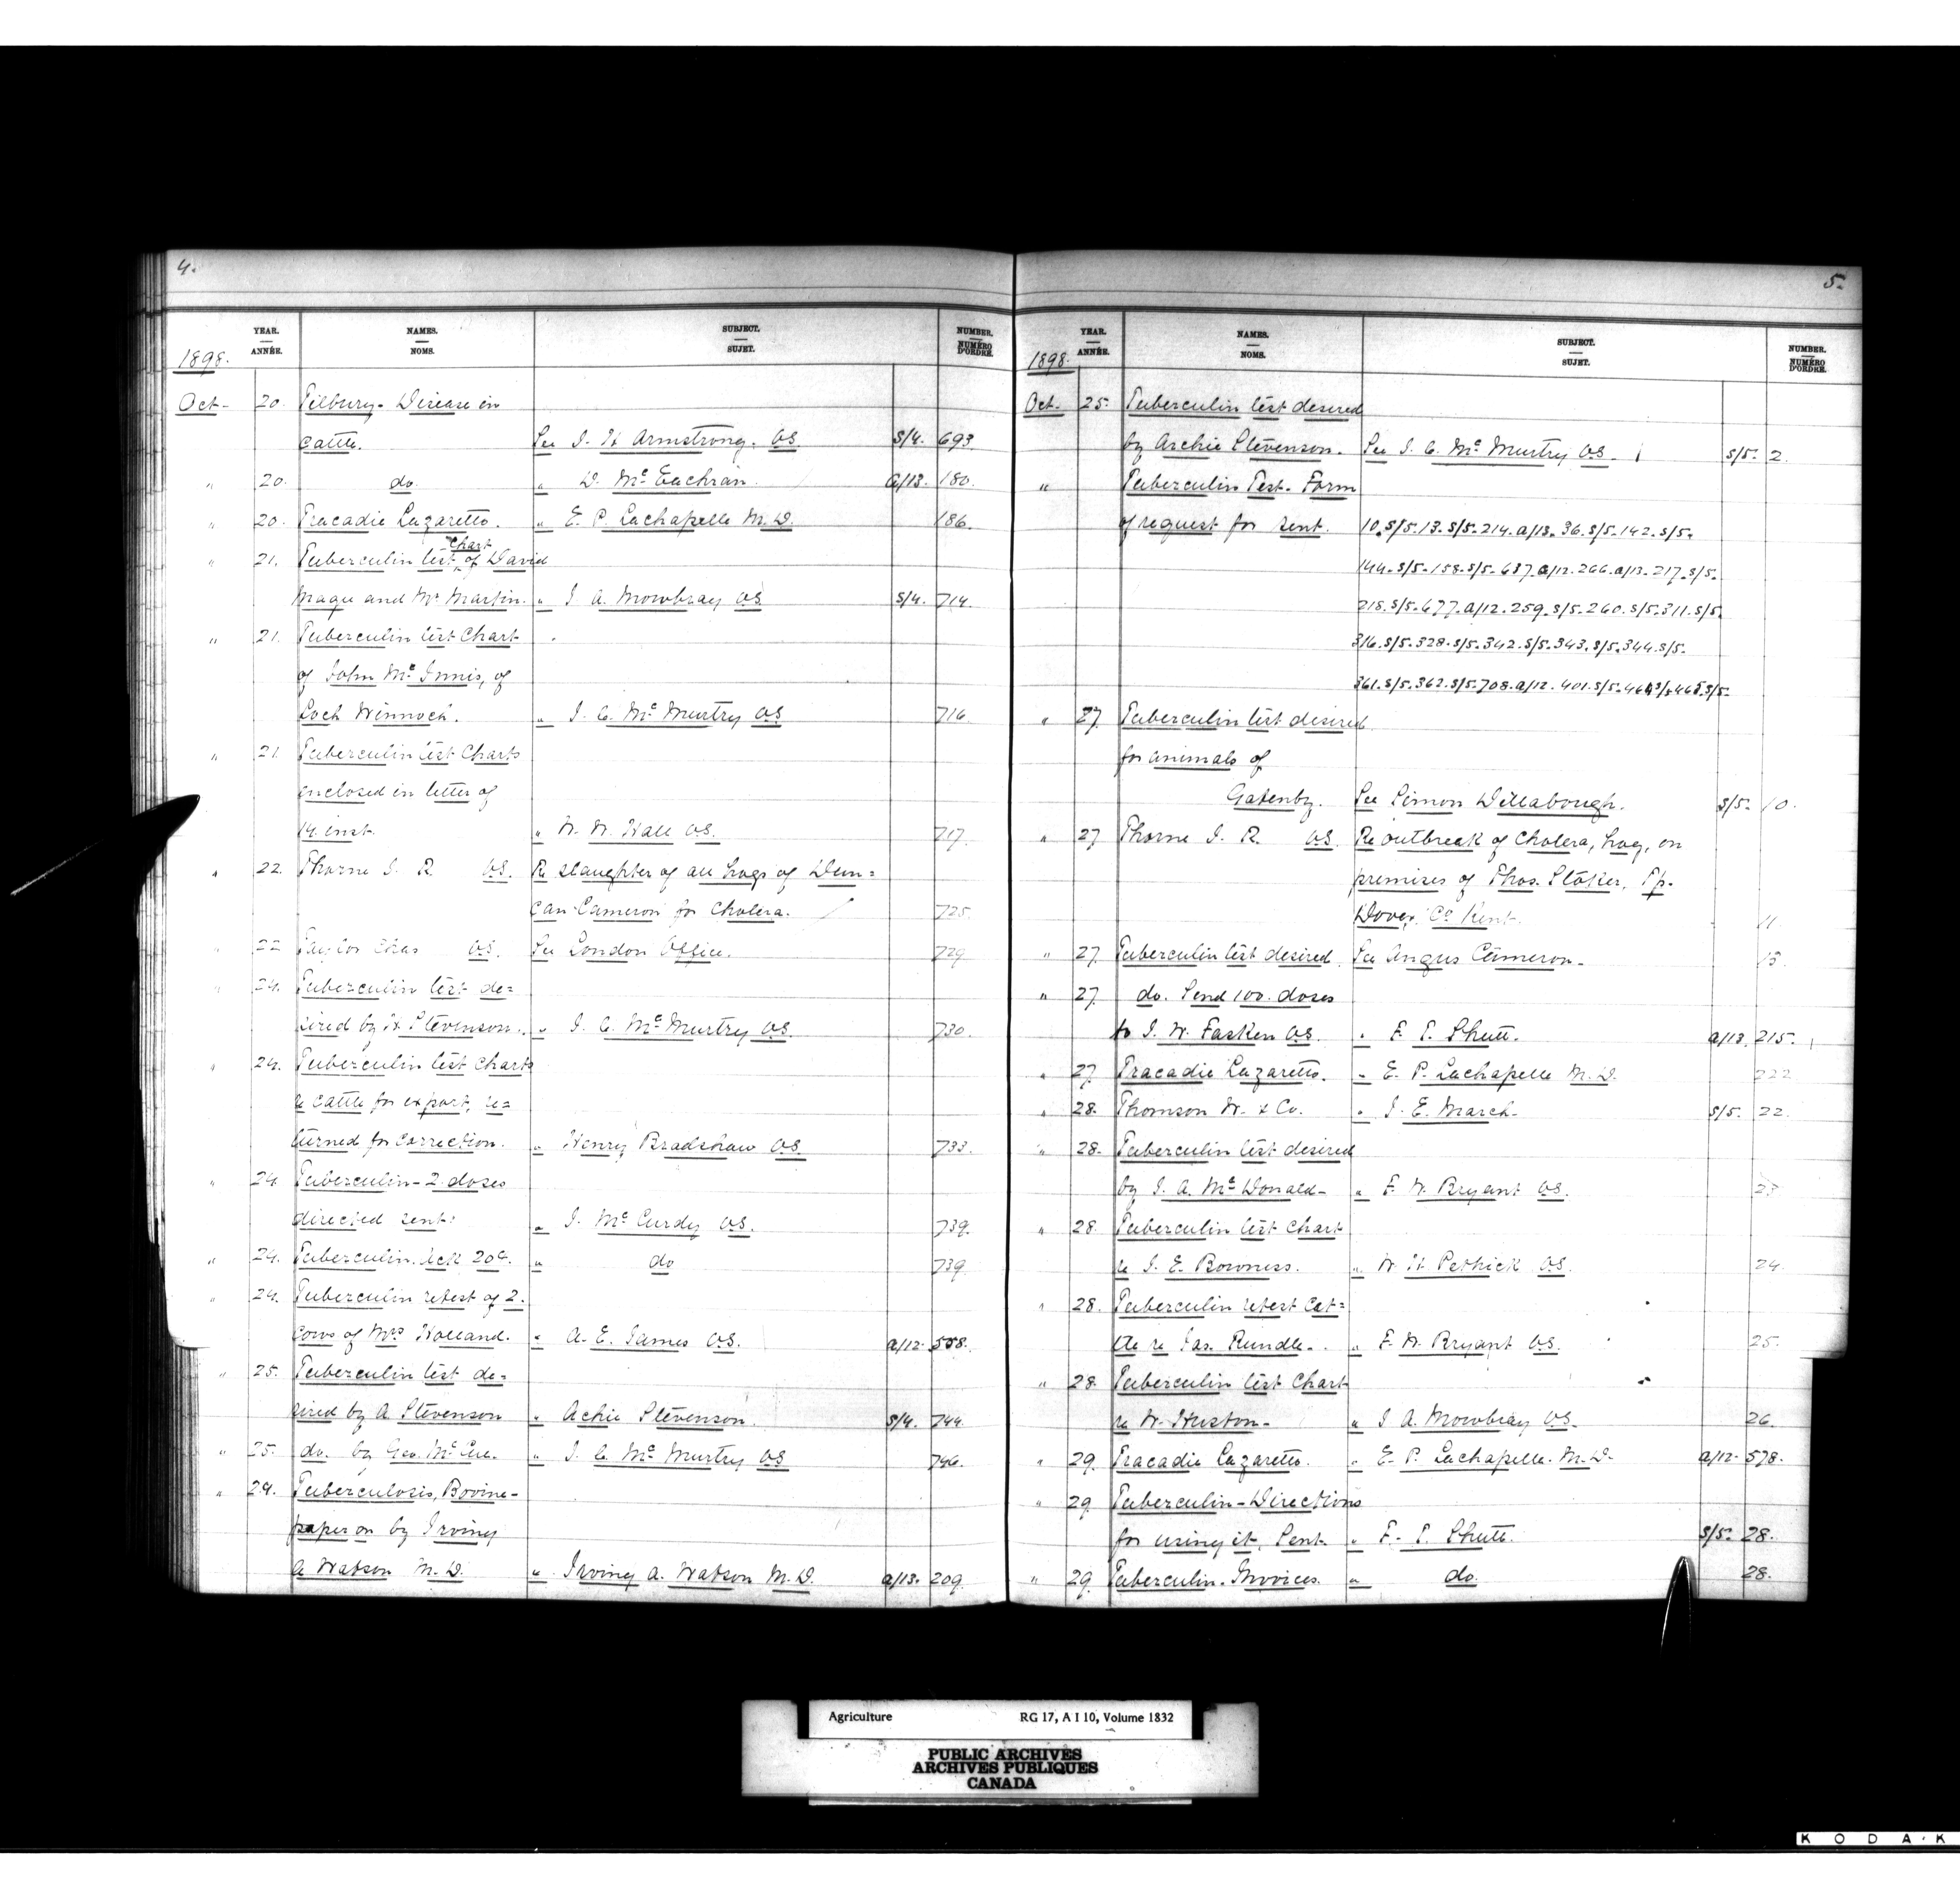 4.
YEAR. NAMES. SUBJECT. NUMBER.
ANNÉE. NOMS. SUJET. NUMÉRO D'ORDRE.
1898.
Oct- 20. Tilbury- Disease in
cattle. See J. H Armstrong. V.S. S/4. 693.
" 20. do. " D. McEachran. A/13. 180.
" 20. Tracadie Lazaretto. " E. P. Lachapelle M.D. 186.
" 21. Tuberculin test Chart of David
Mague and Mr Martin. " J A. Mowbray V.S S/4. 714.
" 21. Tuberculin test Chart
of John McInnis, of
Loch Winnoch. " J. C. McMurtry V.S 716.
" 21. Tuberculin test Charts
enclosed in letter of
14. inst. " W. W. Hall V.S. 717.
" 22. Thorne J. R. V.S. Re slaughter of all hogs of Dun=
can Cameron for Cholera. 725.
" 22 Taylor Chas V.S. See London Office. 729
" 24. Tuberculin test de=
sired by H Stevenson. " J. C. McMurtry V.S. 730.
" 24. Tuberculin test Charts
re cattle for export, re=
turned for correction. " Henry Bradshaw V.S. 733.
" 24. Tuberculin- 2 doses
directed sent. " J. McCurdy V.S. 739.
" 24. Tuberculin. Ack 20c. " do 739
" 24. Tuberculin retest of 2.
Cows of Mrs Holland. " A. E. James V.S. A/12. 558.
" 25. Tuberculin test de=
sired by A Stevenson " Achie Stevenson. S/4. 744.
" 25. do. by Geo. McCue. " J. C. McMurtry V.S 746.
" 29. Tuberculosis, Bovine-
paper on by Irving
A Watson M.D. " Irving A. Watson M.D. A/13. 209.
5.
YEAR. NAMES. SUBJECT. NUMBER.
ANNÉE. NOMS. SUJET. NUMÉRO D'ORDRE.
1898.
Oct. 25. Tuberculin test desired
by Archie Stevenson. See J. C. McMurtry V.S. S/5. 2.
" Tuberculin Test. Form
of request for sent. 10. S/5. 13. S/5. 214. A/13. 36. S/5. 142. S/5.
144. S/5. 158. S/5. 637. A/12. 266. A/13. 217. S/5.
218. S/5. 677. A/12. 259. S/5. 260. S/5. 311. S/5.
316. S/5. 328. S/5. 342. S/5. 343. S/5. 344. S/5.
361. S/5. 362. S/5. 708. A/12. 401. S/5. 464 S/5 465. S/5.
" 27 Tuberculin test desired
for animals of
Gatenby. See Simon Dillabough. S/5. 10.
" 27 Thorne J. R. V.S. Re outbreak of Cholera, hog, on
premises of Thos. Stoker, Tp.
Dover, Co Kent. 11.
" 27. Tuberculin test desired. See Angus Cameron. 13.
" 27. do. Send 100. doses
to J. W. Fasken V.S. " F. T. Shutt. A/13. 215.
" 27. Tracadie Lazaretto. " E. P. Lachapelle M.D. 222
" 28. Thomson W. & Co. " J. E. March. S/5. 22.
" 28. Tuberculin test desired
by J. A. McDonald- " F. W. Bryant V.S. 23
" 28. Tuberculin test Chart
re J. E. Bowness. " W. H Pethick V.S. 24.
" 28. Tuberculin retest Cat=
tle re Jas. Rundle. " F. W. Bryant V.S. 25.
" 28. Tuberculin test Chart
re W. Huston- " J A. Mowbray V.S. 26.
" 29. Tracadie Lazaretto. " E. P. Lachapelle. M.D. A/12. 578.
" 29. Tuberculin-Directions
for using it, Sent. " F. T. Shutt. S/5. 28.
" 29. Tuberculin. Invoices. " do. 28.
Agriculture RG 17, A I 10, Volume 1832
PUBLIC ARCHIVES
ARCHIVES PUBLIQUES
CANADA
KODAK